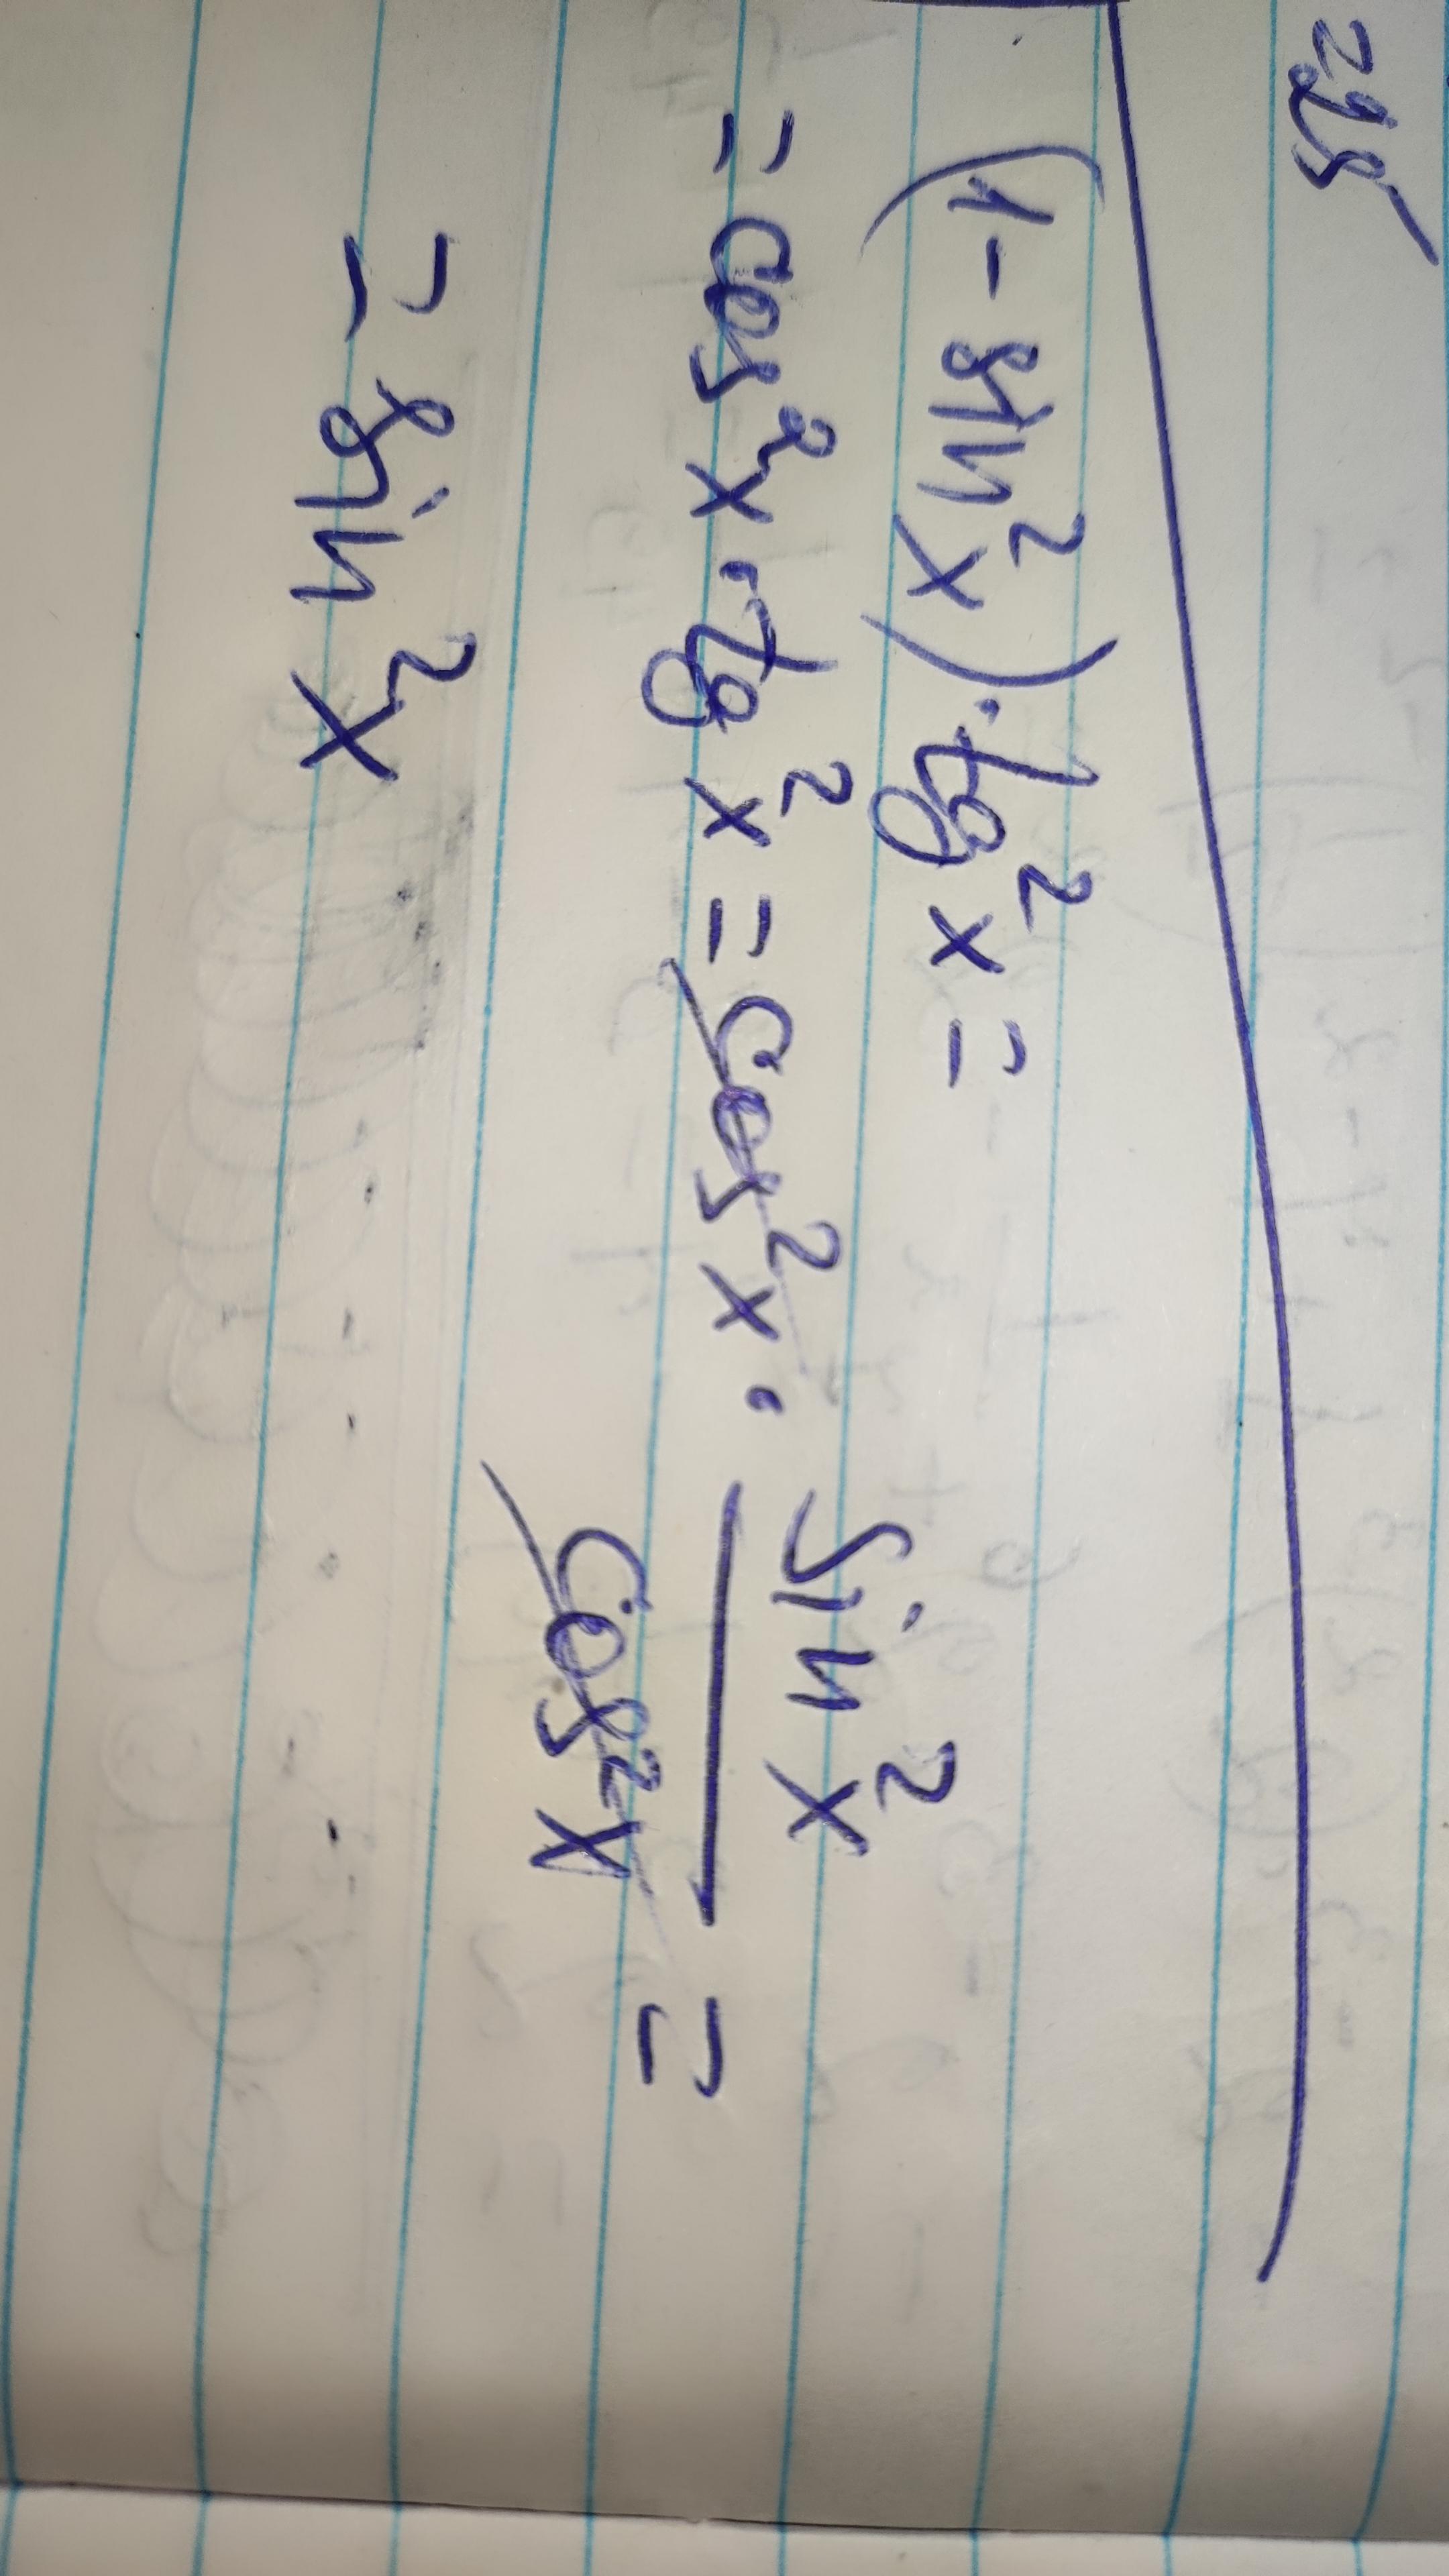 (1 - sin²x) · tg²x =
= cos²x · tg²x = cos²x · sin²x / cos²x =
= sin²x